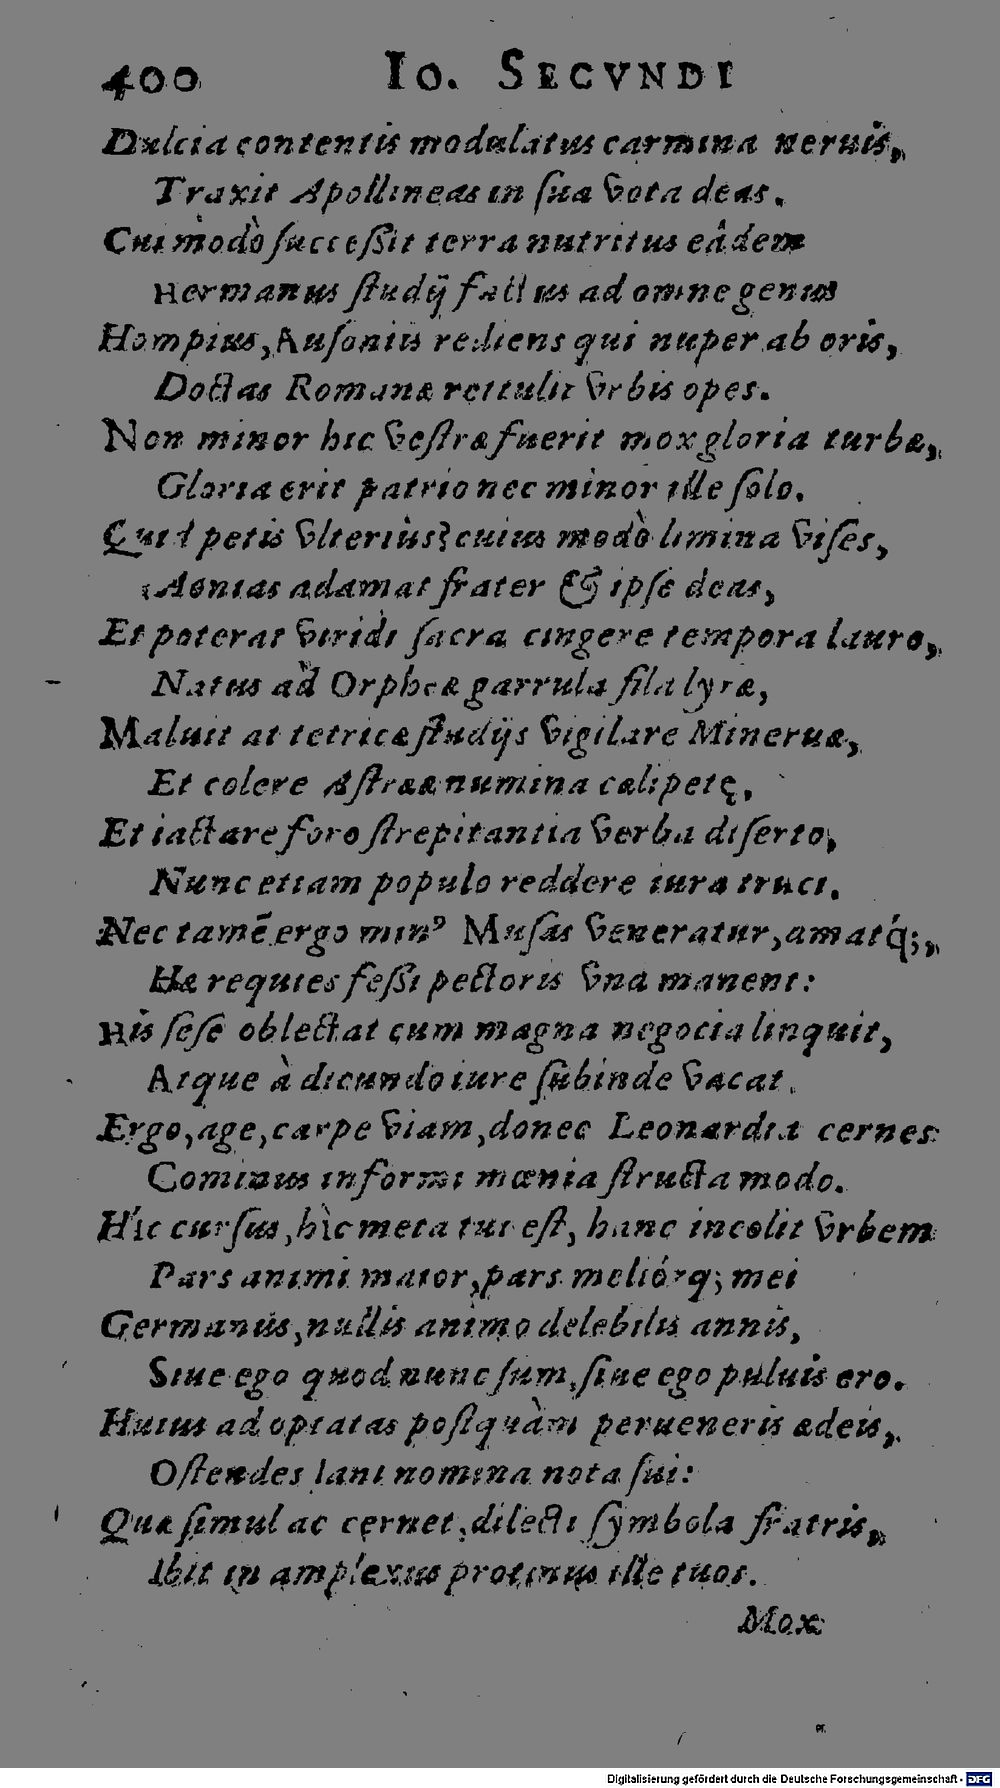 400 IO. SECVNDI
Dulcia contentis modulatus carmina neruis,
Traxit Apollineas in ſua vota deas.
Cui modò ſucceſsit terra nutritus eâdem
Hermanus ſtudÿ fact us ad omne genus
Hompius, Auſoniis rediens qui nuper ab oris,
Doctas Romanæ rettulit vrbis opes.
Non minor hic veſtræ fuerit mox gloria turbæ,
Gloria erit patrio nec minor ille ſolo.
Quid petis vlteriùs? cuius modò limina viſes,
Aonias adamat frater & ipſe deas,
Et poterat viridi ſacra cingere tempora lauro,
Natus ad Orpheæ garrula fila lyræ,
Maluit at tetricæ ſtudijs vigilare Mineruæ,
Et colere Aſtrææ numina cælipetę,
Et iactare foro ſtrepitantia verba diſerto,
Nunc etiam populo reddere iura truci.
Nec tamē ergo minꝰ Muſas veneratur, amatq́;,
Hæ requies feſsi pectoris vna manent:
His ſeſe oblectat cum magna negocia linquit,
Atque à dicundo iure ſubinde vacat.
Ergo, age, carpe viam, donec Leonardia cernes
Cominus informi mœnia ſtructa modo.
Hîc curſus, hìc meta tui eſt, hanc incolit vrbem
Pars animi maior, pars meliórq; mei
Germanus, nullis animo delebilis annis,
Siue ego quod nunc ſum, ſiue ego puluis ero.
Huius ad optatas poſtquàm perueneris ædeis,
Oſtendes Iani nomina nota ſui:
Quæ ſimul ac cernet, dilecti ſymbola fratris,
Ibit in amplexus protinus ille tuos.
Mox
Digitalisierung gefördert durch die Deutsche Forschungsgemeinschaft - DFG